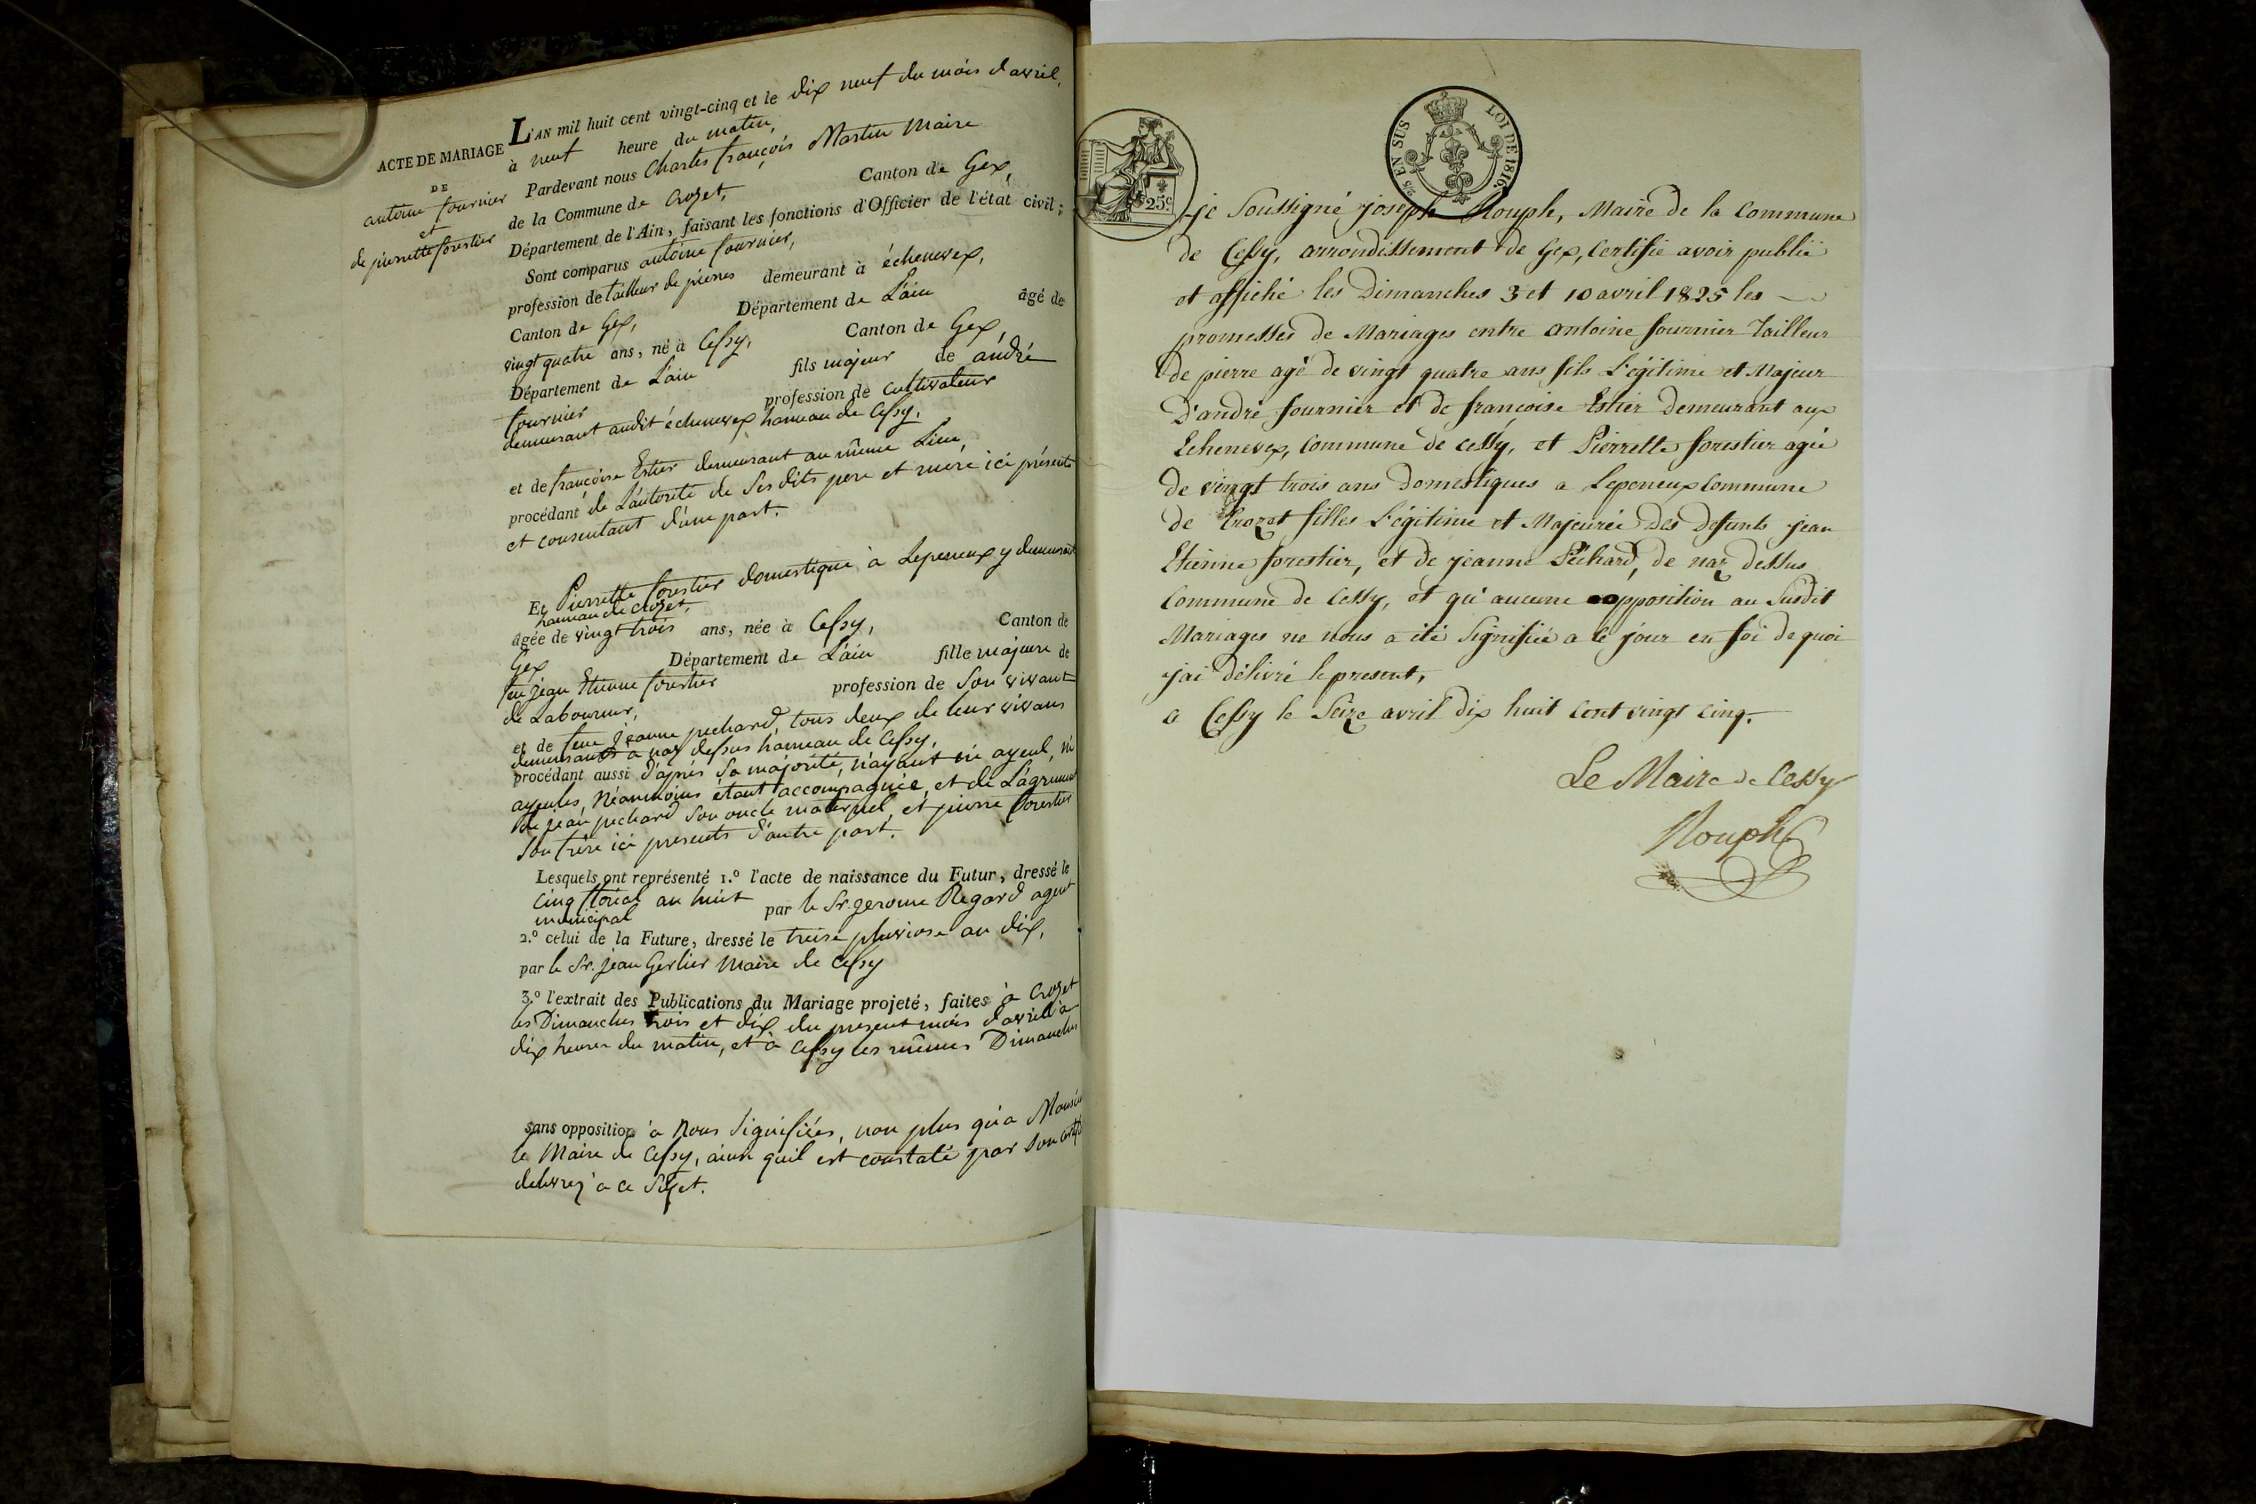 ACTE DE MARIAGE
DE
antoine fournier
et
de pierrette forestier
L'AN mil huit cent vingt-cinq et le dix neuf du mois d'avril,
à neuf heure du matin,
Pardevant nous Charles françois Martin Maire
de la Commune de Crozet, Canton de Gex,
Département de l'Ain, faisant les fonctions d'Officier de l'état civil;
Sont comparus antoine fournier,
profession de tailleur de pierres demeurant à échenevex,
Canton de Gex, Département de L'ain âgé de
vingt quatre ans, né à Cessy, Canton de Gex,
Département de L'ain fils majeur de andré
fournier profession de cultivateur
demeurant audit échenevex hameau de Cessy.
et de françoise Estier demeurant au même Lieu,
procédant de L'autorité de ses dits pere et mere ici présents
et consentant d'une part.
Et Pierrette forestier domestique à Lepeneux y demeurant
hameau de crozet,
agée de vingt trois ans, née à Cessy, Canton de
Gex Département de L'ain fille majeure de
feu jean Etienne forestier profession de Son vivant
de Laboureur,
et de feue jeanne pechard, tous deux de leur vivans
demeurants à naz dessus hameau de Cessy,
procédant aussi d'après sa majorité, n'ayant ni ayeul, ni
ayeules, Néanmoins étant accompagnée, et de L'agrement
de jean pechard son oncle maternel, et pierre forestier
son frère ici presents d'autre part.
Lesquels ont représenté 1.º l'acte de naissance du Futur, dressé le
cinq floréal an huit par le Sr. jerome Regard agent
municipal
2.º celui de la Future, dressé le treise pluviose an dix,
par le Sr. jean Gerlier Maire de Cessy
3.º l'extrait des Publications du Mariage projeté, faites à Crozet
les Dimanches trois et dix du present mois d'avril à
dix heures du matin, et à Cessy les mêmes Dimanches
sans opposition à Nous signifiées, non plus qu'a
le Maire de Cessy, ainsi quil est constaté par son
delivrez a ce sujet.
25c
2/5 EN SUS
LOI DE 1816.
je Soussigné joseph Rouph, Maire de la Commune
de Cessy, arrondissement de Gex, Certifie avoir publié
et affiché les Dimanches 3 et 10 avril 1825 les
promesses de Mariages entre antoine fournier Tailleur
de pierre agé de vingt quatre ans fils Légitime et Majeur
D'andré fournier et de françoise Estier demeurant aux
Echenevex, Commune de Cessy, et Pierrette forestier agée
de vingt trois ans Domestiques a Lepeneux Commune
de Crozet filles Légitime et Majeurée des defunts jean
Etienne forestier, et de jeanne Péchard, de naz dessus
Commune de Cessy, et qu'aucune opposition au Susdit
Mariages ne nous a été Signifiée a ce jour en foi de quoi
j'ai délivré le present,
a Cessy le Seize avril dix huit cent vingt cinq.
Le Maire de Cessy
Rouph